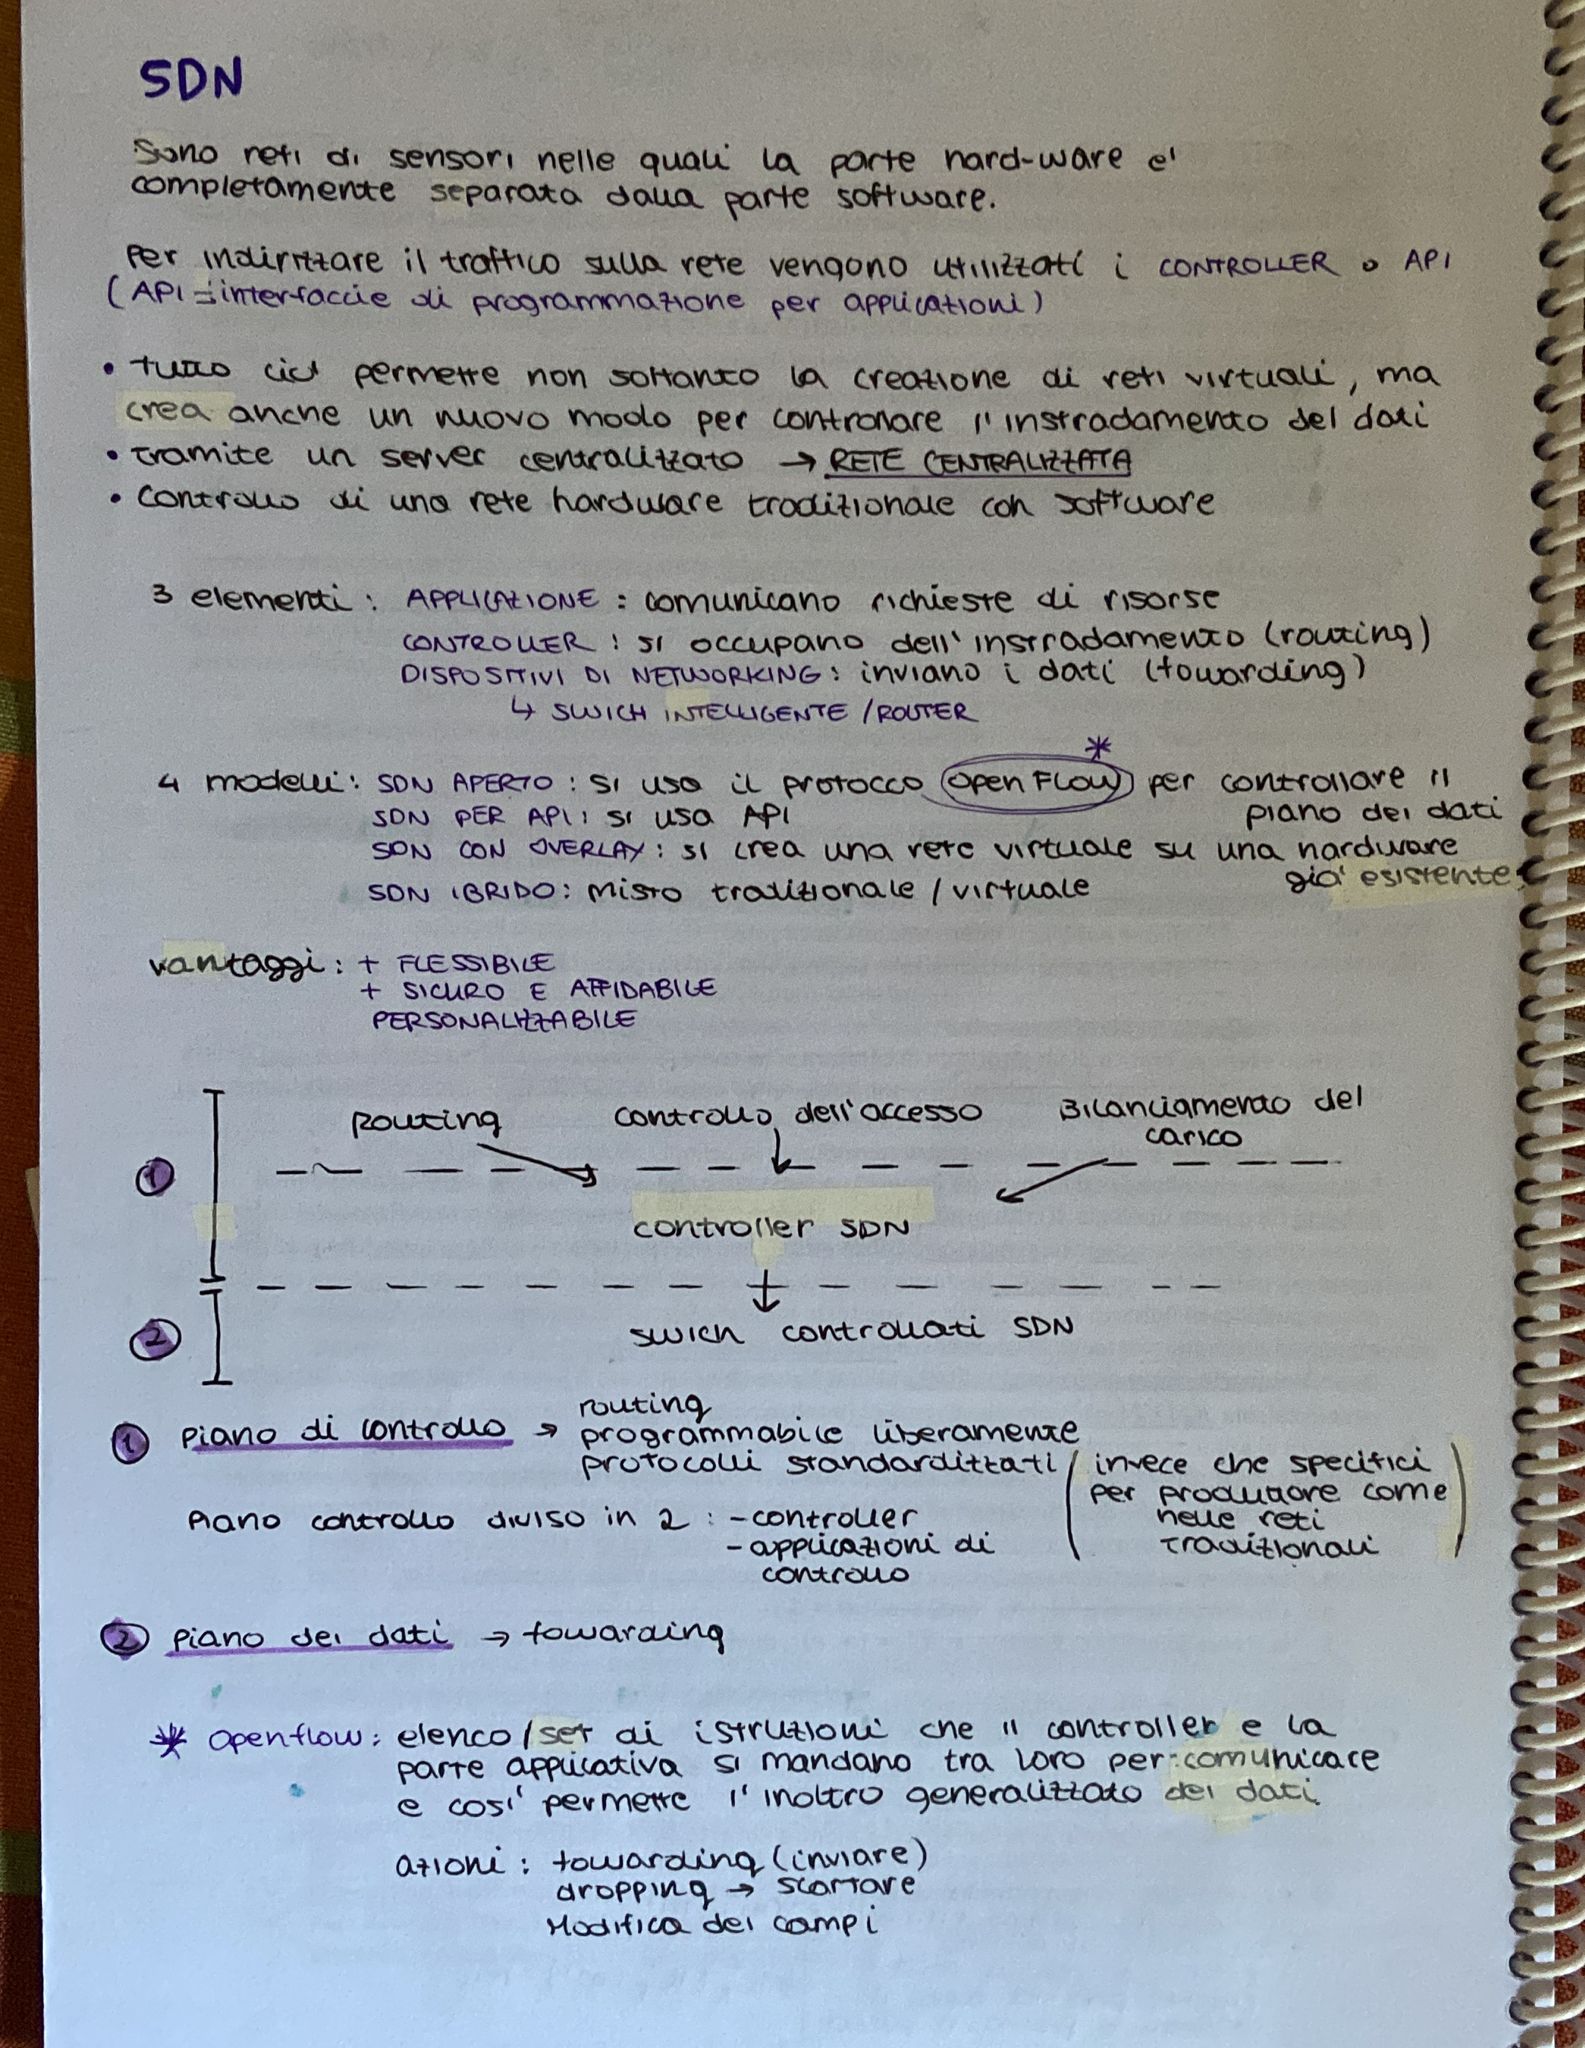 SDN
Sono reti di sensori nelle quali la parte hard-ware e'
completamente separata dalla parte software.
Per indirizzare il traffico sulla rete vengono utilizzati i CONTROLLER o API
(API = interfaccie di programmazione per applicazioni)
• Tutto ciò permette non soltanto la creazione di reti virtuali, ma
crea anche un nuovo modo per controllare l'instradamento dei dati
• Tramite un server centralizzato → RETE CENTRALIZZATA
• Controllo di una rete hardware tradizionale con software
3 elementi: APPLICAZIONE: comunicano richieste di risorse
CONTROLLER: si occupano dell'instradamento (routing)
DISPOSITIVI DI NETWORKING: inviano i dati (fowarding)
↳ SWICH INTELLIGENTE/ROUTER
*
4 modelli: SDN APERTO: si usa il protocco Open Flow per controllare il
piano dei dati
SDN PER API: si usa API
SDN CON OVERLAY: si crea una rete virtuale su una hardware
già esistente
SDN IBRIDO: misto tradizionale / virtuale
vantaggi: + FLESSIBILE
+ SICURO E AFFIDABILE
PERSONALIZZABILE
Routing controllo dell'accesso Bilanciamento del
carico
1
controller SDN
2
swich controllati SDN
1 piano di controllo → routing
programmabile liberamente
protocolli standardizzati (invece che specifici
per produttore come
nelle reti
tradizionali)
Piano controllo diviso in 2: - controller
- applicazioni di
controllo
2 piano dei dati → fowarding
* Openflow: elenco/set di istruzioni che il controller e la
parte applicativa si mandano tra loro per comunicare
e cosi' permette l'inoltro generalizzato dei dati.
azioni: fowarding (inviare)
dropping → scartare
Modifica dei campi